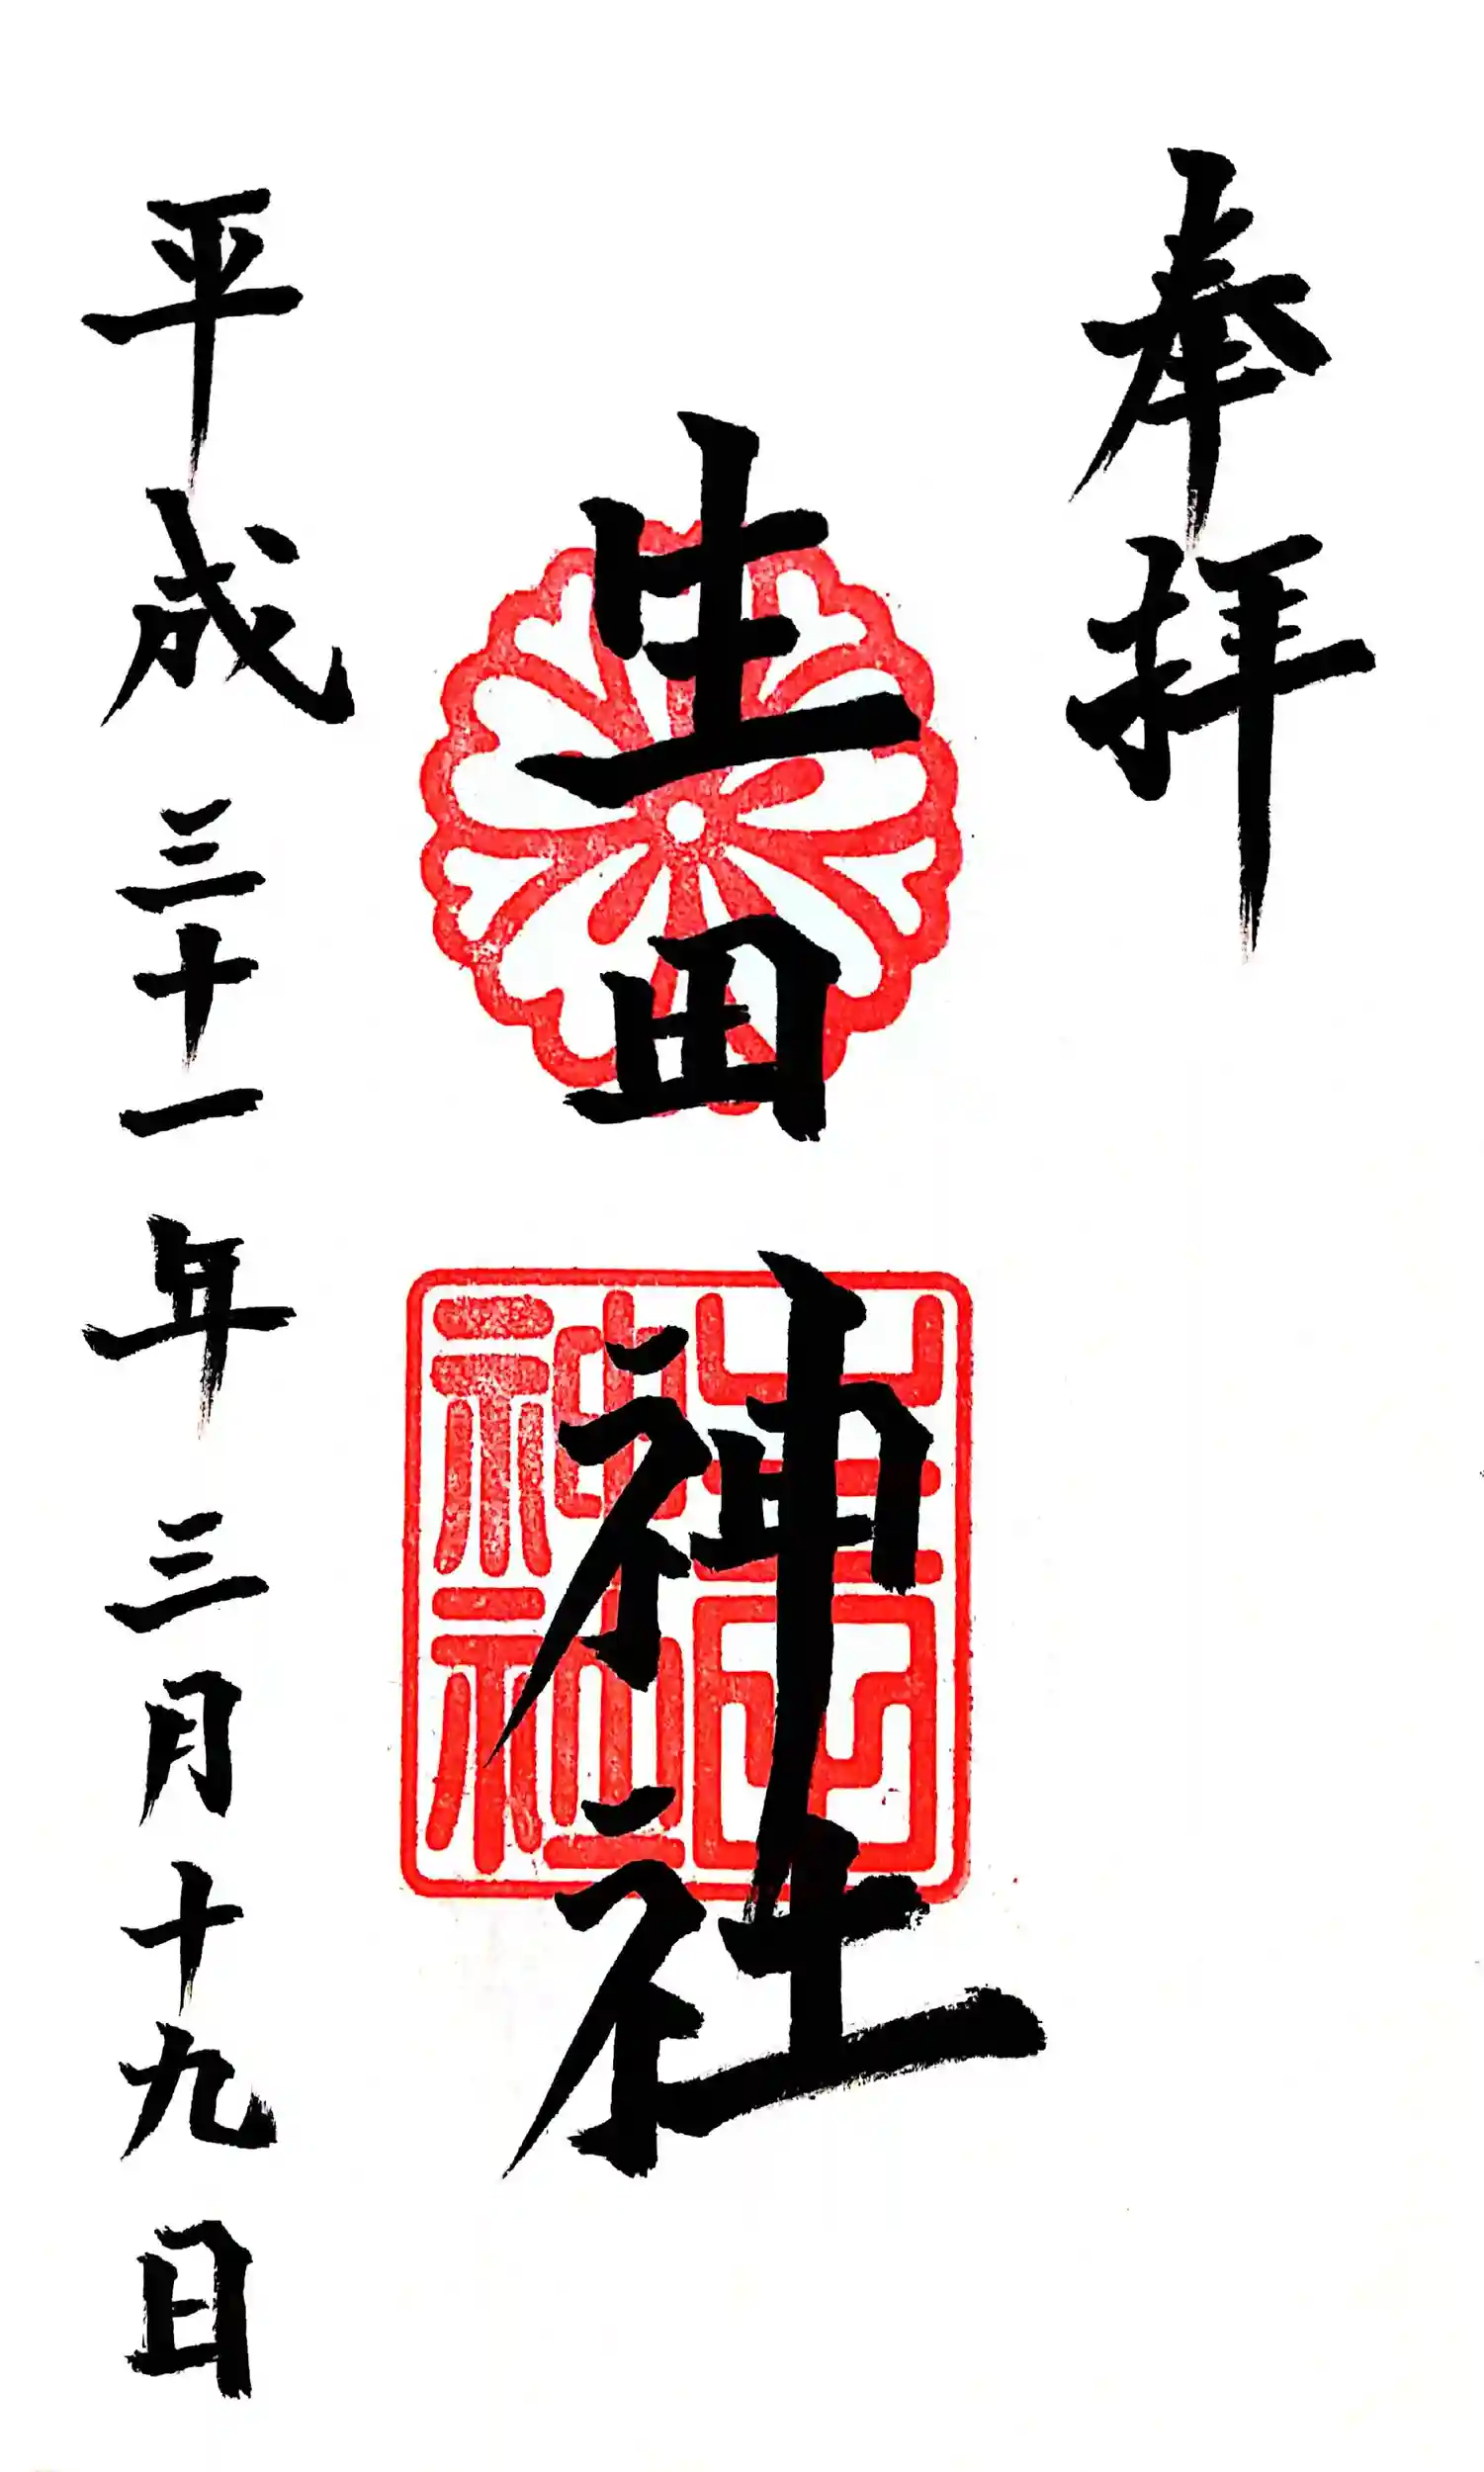 奉拝
生田神社
生田神社
平成三十一年三月十九日